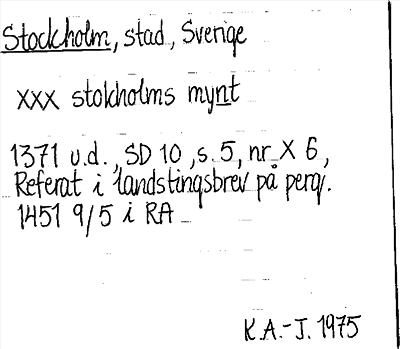 Stockholm, stad, Sverige
xxx stokholms mynt
1371 u.d., SD 10, s. 5, nr X 6,
Referat i landstingsbrev på perg.
1451 9/5 i RA
K.A.-J. 1975